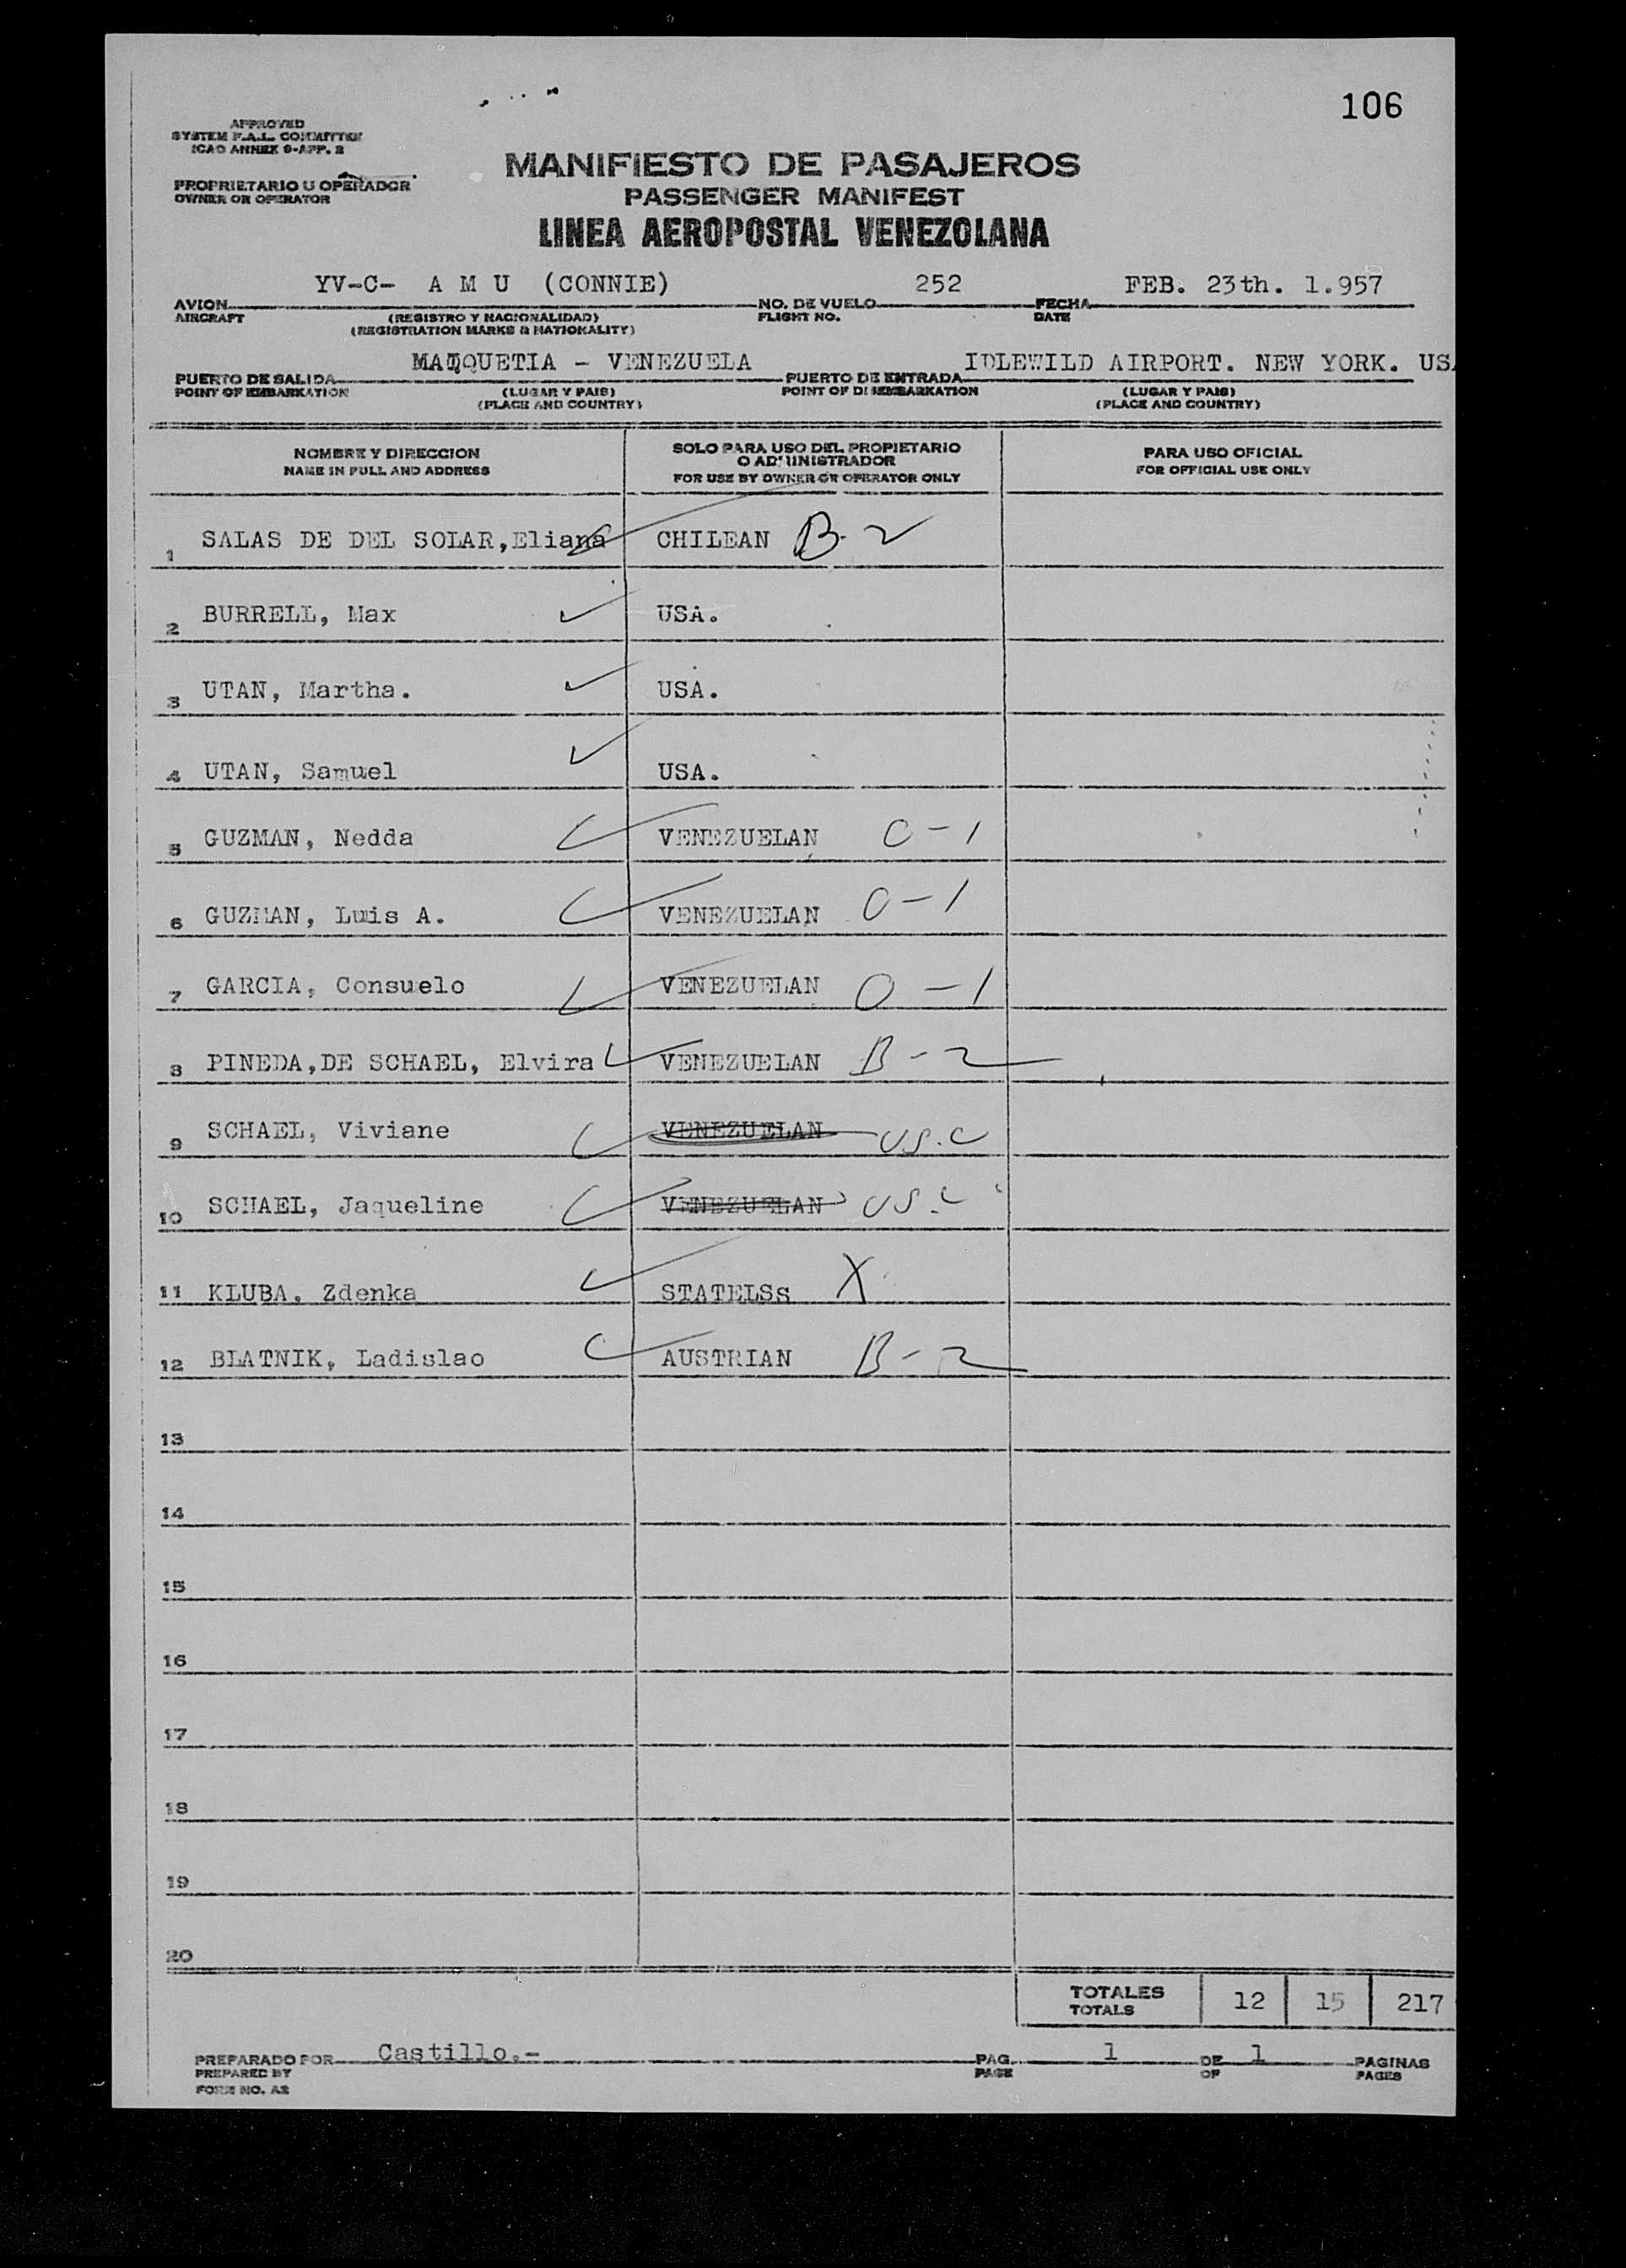 106
APPROVED
SYSTEM F.A.L. COMMITTEE
ICAO ANNEX 9-APP. 2
PROPRIETARIO U OPERADOR
OWNER OR OPERATOR
MANIFIESTO DE PASAJEROS
PASSENGER MANIFEST
LINEA AEROPOSTAL VENEZOLANA
YV-C- A M U (CONNIE) 252 FEB. 23th. 1.957
AVION NO. DE VUELO FECHA
AIRCRAFT (REGISTRO Y NACIONALIDAD) FLIGHT NO. DATE
(REGISTRATION MARKS & NATIONALITY)
MAIQUETIA - VENEZUELA IDLEWILD AIRPORT. NEW YORK. USA
PUERTO DE SALIDA PUERTO DE ENTRADA
POINT OF EMBARKATION (LUGAR Y PAIS) POINT OF DISEMBARKATION (LUGAR Y PAIS)
(PLACE AND COUNTRY) (PLACE AND COUNTRY)
NOMBRE Y DIRECCION SOLO PARA USO DEL PROPIETARIO PARA USO OFICIAL
O ADMINISTRADOR
NAME IN FULL AND ADDRESS FOR USE BY OWNER OR OPERATOR ONLY FOR OFFICIAL USE ONLY
1 SALAS DE DEL SOLAR,Eliana CHILEAN B-2
2 BURRELL, Max USA.
3 UTAN, Martha. USA.
4 UTAN, Samuel USA.
5 GUZMAN, Nedda VENEZUELAN O-1
6 GUZMAN, Luis A. VENEZUELAN O-1
7 GARCIA, Consuelo VENEZUELAN O-1
8 PINEDA,DE SCHAEL, Elvira VENEZUELAN B-2
9 SCHAEL, Viviane VENEZUELAN US.C
10 SCHAEL, Jaqueline VENEZUELAN US.C
11 KLUBA, Zdenka STATELSs X
12 BLATNIK, Ladislao AUSTRIAN B-2
13
14
15
16
17
18
19
20
TOTALES 12 15 217
TOTALS
PREPARADO POR Castillo.- PAG. 1 DE 1 PAGINAS
PREPARED BY PAGE OF PAGES
FORM NO. A2